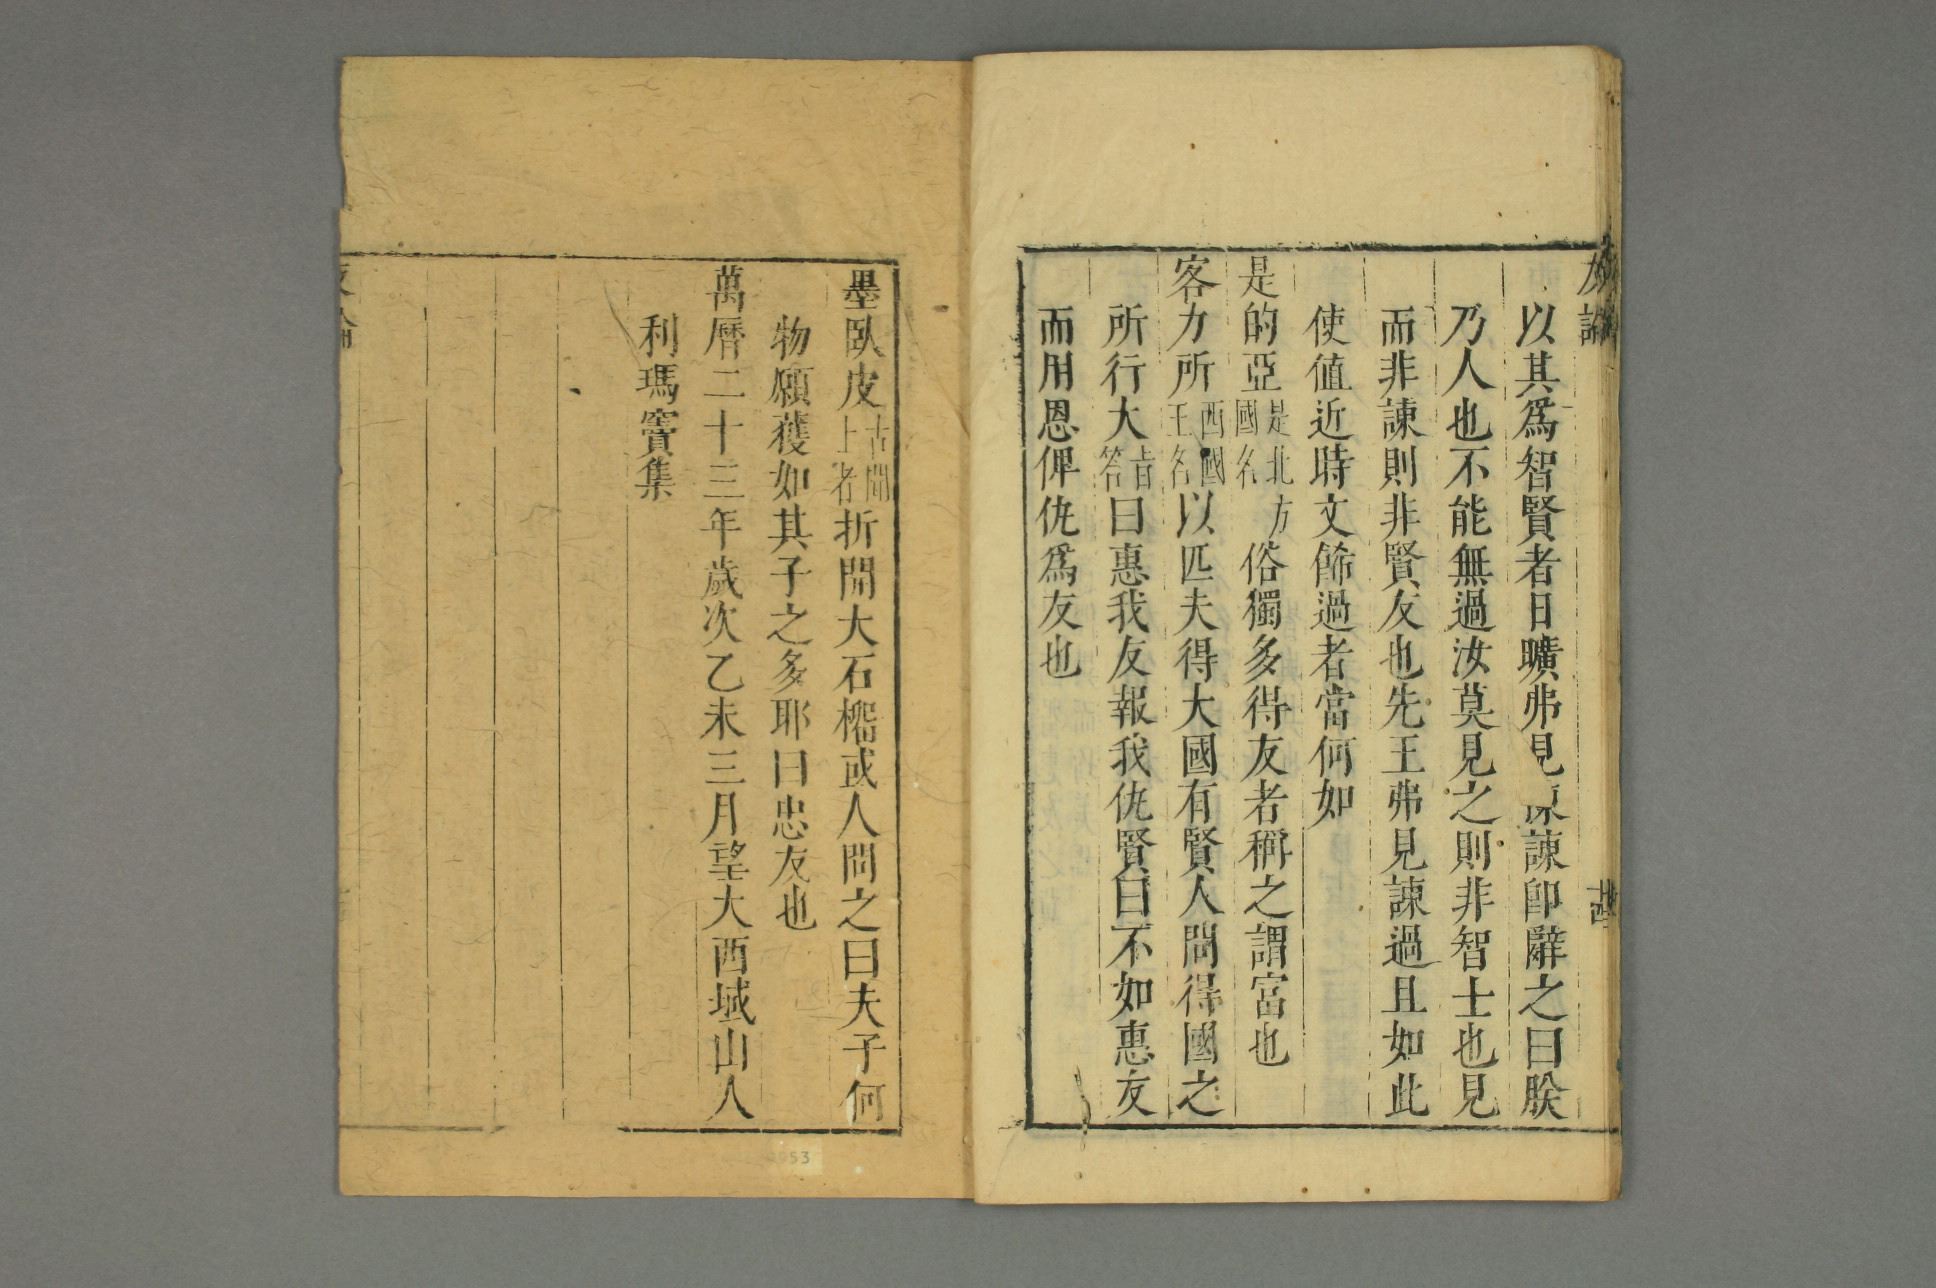 友論
以其爲智賢者日曠弗見諫諫卽辭之曰朕
乃人也不能無過汝莫見之則非智士也見
而非諫則非賢友也先王弗見諫過且如此
使值近時文餙過者當何如
是的亞是北方國名俗獨多得友者稱之謂富也
客力所西國王名以匹夫得大國有賢人問得國之
所行大旨答曰惠我友報我仇賢曰不如惠友
而用恩俾仇爲友也
墨臥皮古聞上者折開大石榴或人問之曰夫子何
物願獲如其子之多耶曰忠友也
萬曆二十三年歲次乙未三月望大西域山人
利瑪竇集
053